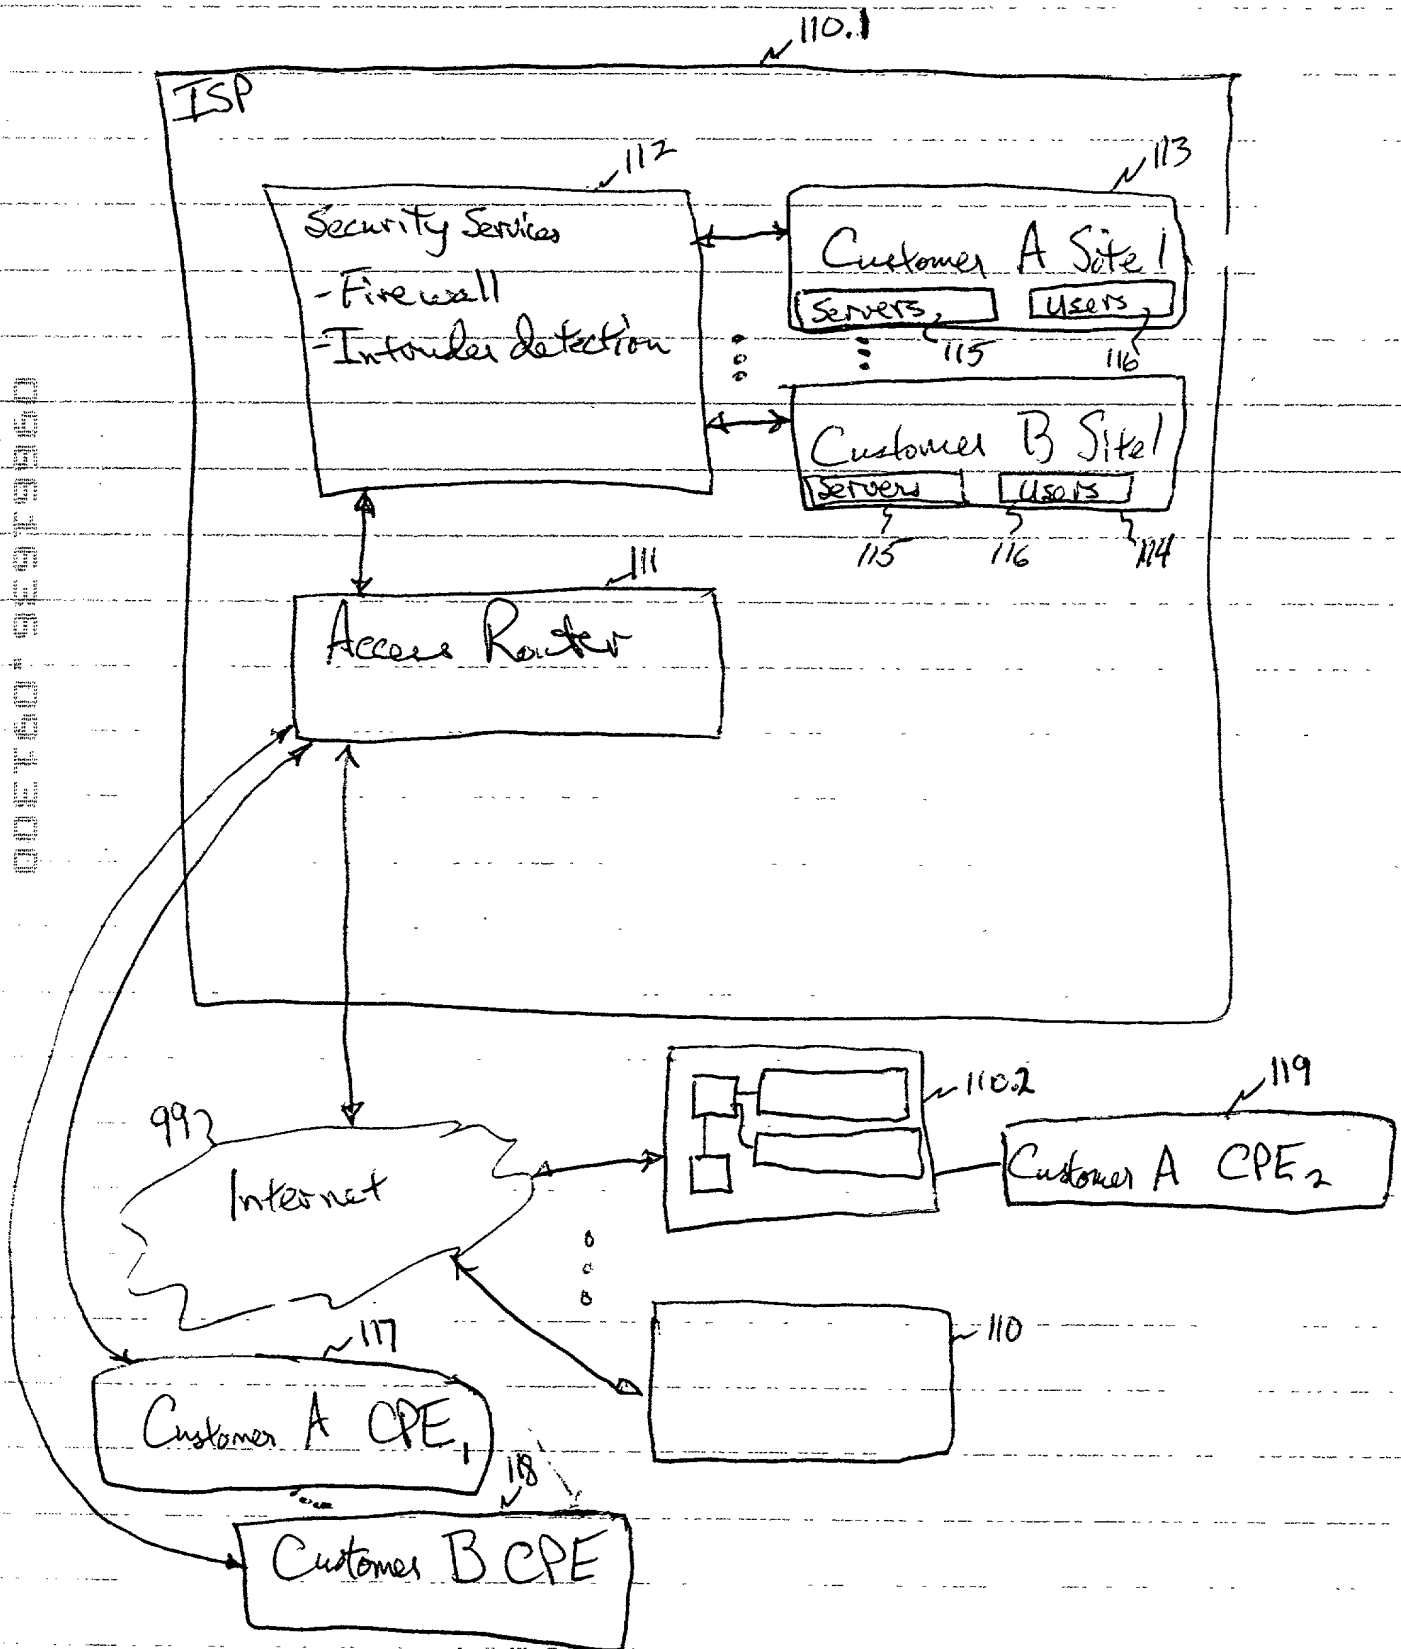 110.1
ISP
112
113
Security Services
- Firewall
- Intruder detection
Customer A Site 1
Servers
Users
115
116
Customer B Site 1
Servers
Users
115
116
114
111
Access Router
99
Internet
110.2
119
Customer A CPE2
110
117
Customer A CPE1
118
Customer B CPE